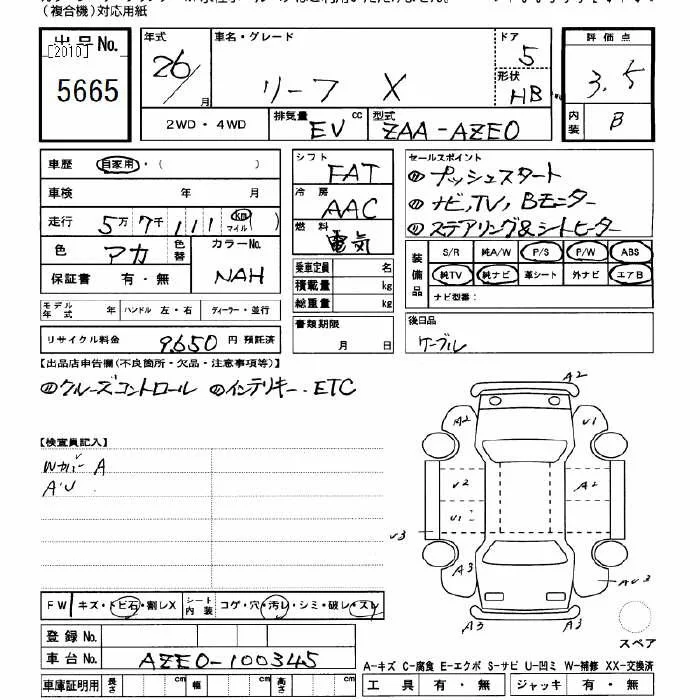 (複合機)対応用紙
出品No.
[2010]
5665
年式 26/ 月
車名・グレード リーフ X
ドア 5
形状 HB
評価点 3.5
内装 B
2WD・4WD
排気量 EV cc
型式 ZAA-AZE0
車歴 自家用・( )
車検 年 月
走行 5万7千111 km マイル( )
色 アカ 色替 カラーNo. NAH
保証書 有・無
モデル年式 年 ハンドル 左・右 ディーラー・並行
リサイクル料金 9,650 円 預託済
シフト FAT
冷房 AAC
燃料 電気
乗車定員 名
積載量 kg
総重量 kg
書類期限 月 日
セールスポイント
プッシュスタート
ナビ,TV, Bモニター
ステアリング&シートヒーター
装備品 S/R 純A/W P/S P/W ABS
純TV 純ナビ 革シート 外ナビ エアB
ナビ型番:
後日品
ケーブル
【出品店申告欄(不良箇所・欠品・注意事項等)】
クルーズコントロール インテリキー・ETC
【検査員記入】
Wカバー A
A・U
A2
A2 U1
U2 A2
U1
U3
A3 AU3
A3 A3
スペア
FW キズ・トビ石・割レX シート内装 コゲ・穴・汚レ・シミ・破レ・スレ
登録No.
車台No. AZE0-100345
車庫証明用 長さ cm 幅 cm 高さ cm
A-キズ C-腐食 E-エクボ S-サビ U-凹ミ W-補修 XX-交換済
工具 有・無 ジャッキ 有・無